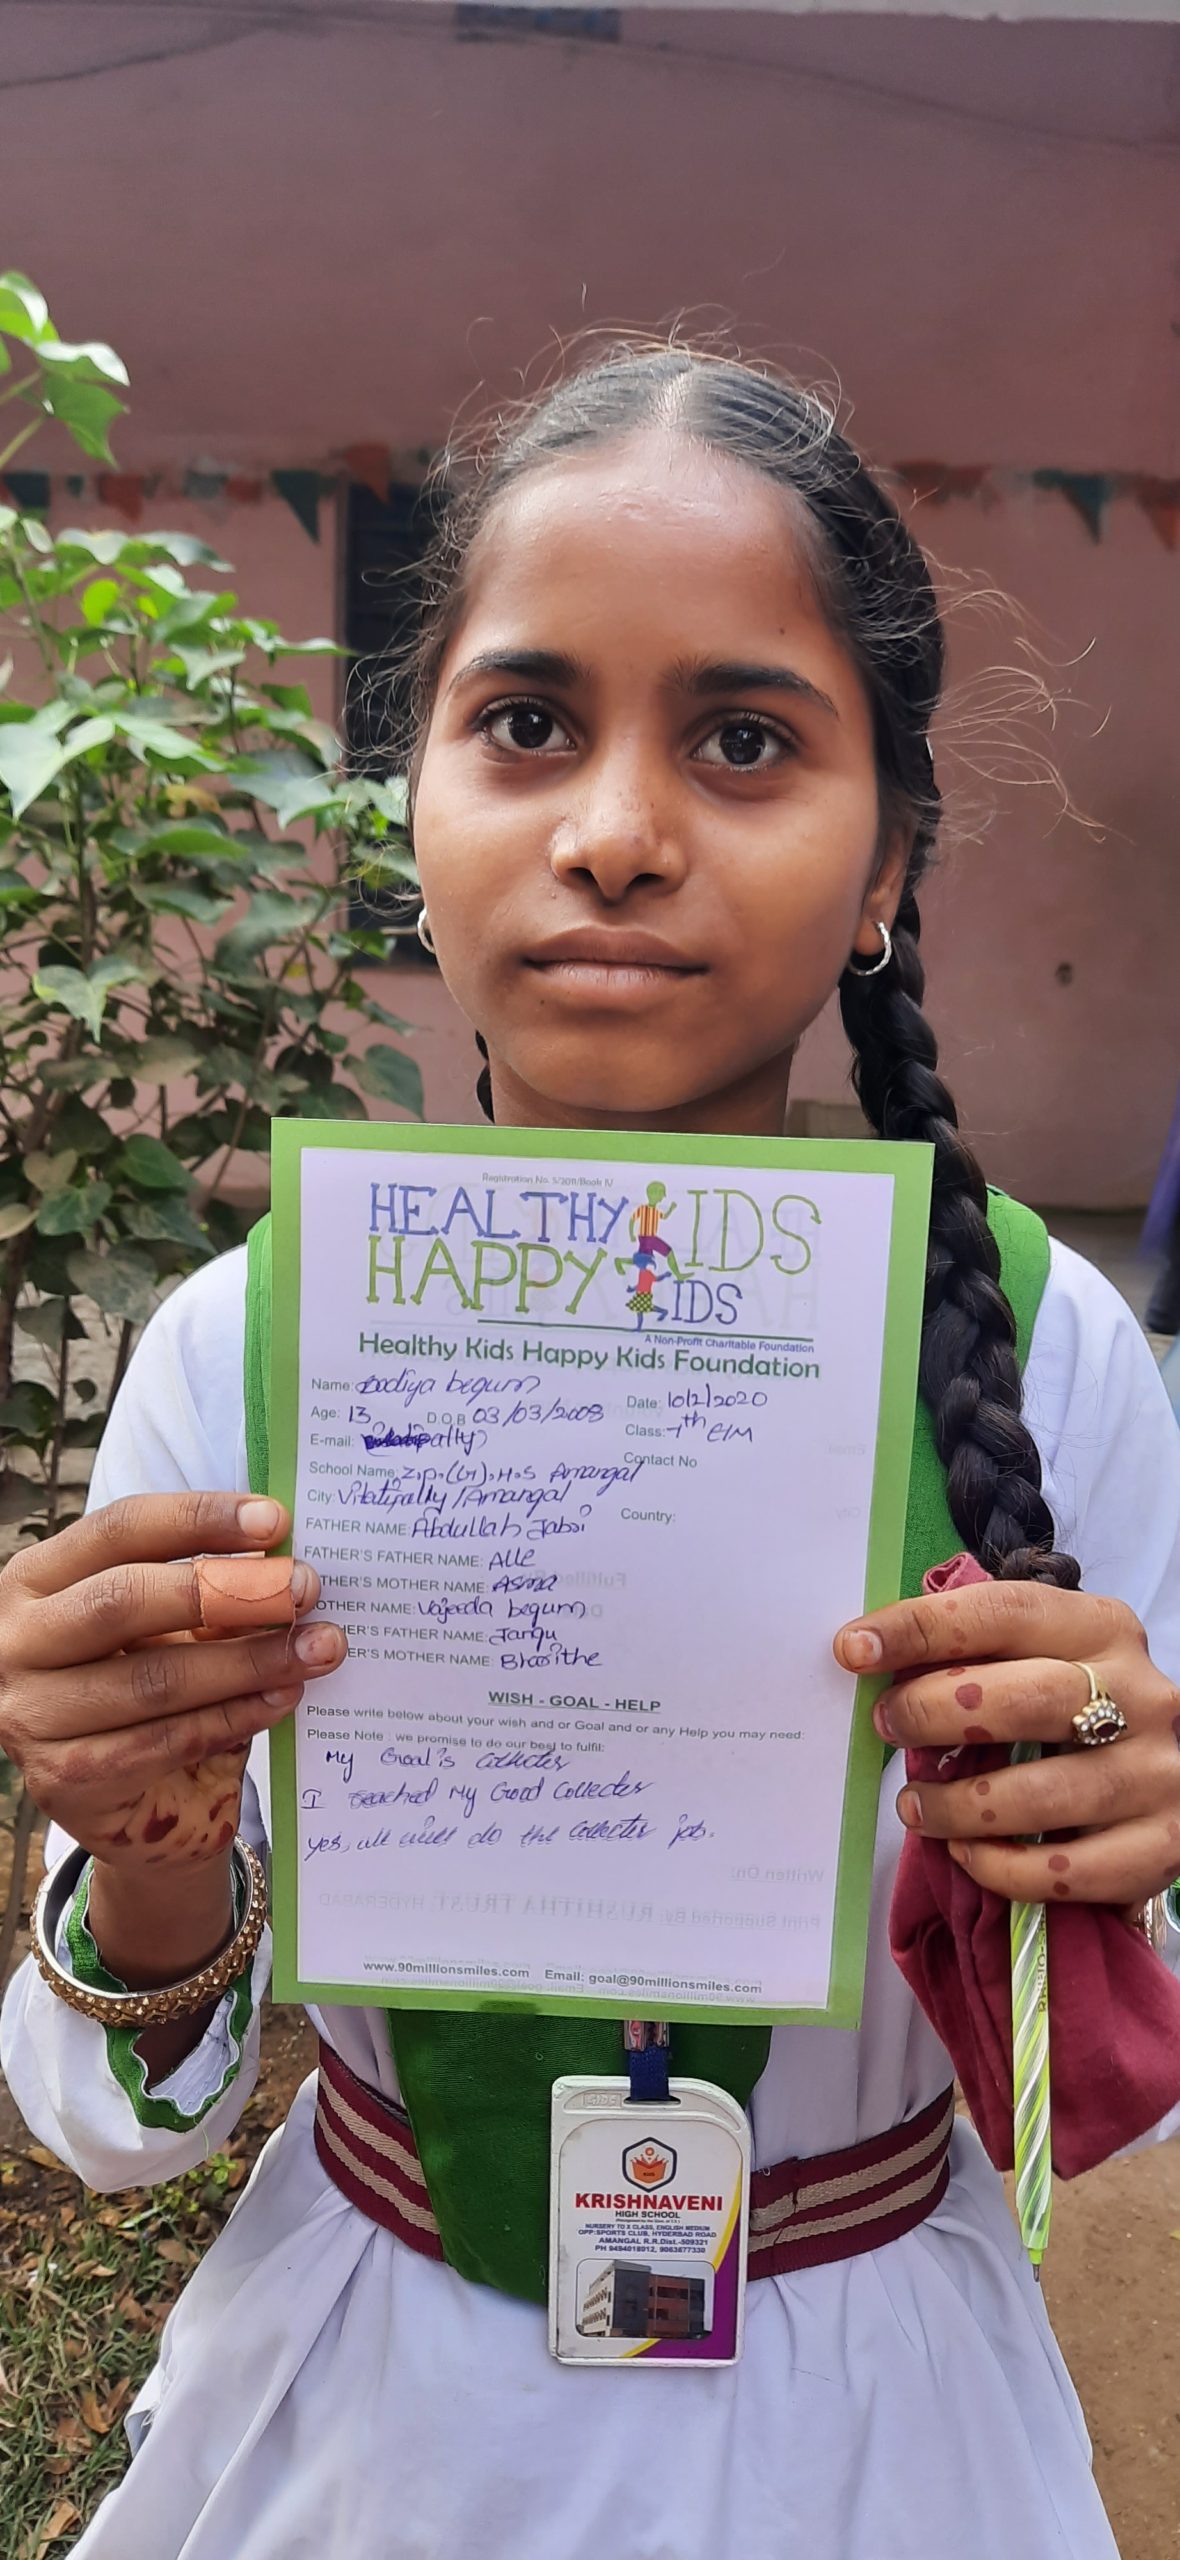 Registration No. 5/2011/Book IV
HEALTHY KIDS
HAPPY KIDS
A Non-Profit Charitable Foundation
Healthy Kids Happy Kids Foundation
Name: Sadiya begum
Date: 10/2/2020
Age: 13 D.O.B 03/03/2008
Class: 7th E/M
E-mail:
Contact No
School Name: Z.p.(G).H.S Amangal
City: Vitaipally/Amangal
Country:
FATHER NAME: Abdullah Jabri
FATHER'S FATHER NAME: Alle
THER'S MOTHER NAME: Asma
OTHER NAME: Vajeeda begum
HER'S FATHER NAME: Jangu
ER'S MOTHER NAME:
WISH - GOAL - HELP
Please write below about your wish and or Goal and or any Help you may need:
Please Note : we promise to do our best to fulfil:
My Goal is Collecter
I reached My Good Collecter
yes, will do the Collecter job.
www.90millionsmiles.com Email: goal@90millionsmiles.com
KRISHNAVENI
HIGH SCHOOL
NURSERY TO X CLASS, ENGLISH MEDIUM
OPP:SPORTS CLUB, HYDERBAD ROAD
AMANGAL R.R.Dist.-509321
PH 9494018012, 9063677330